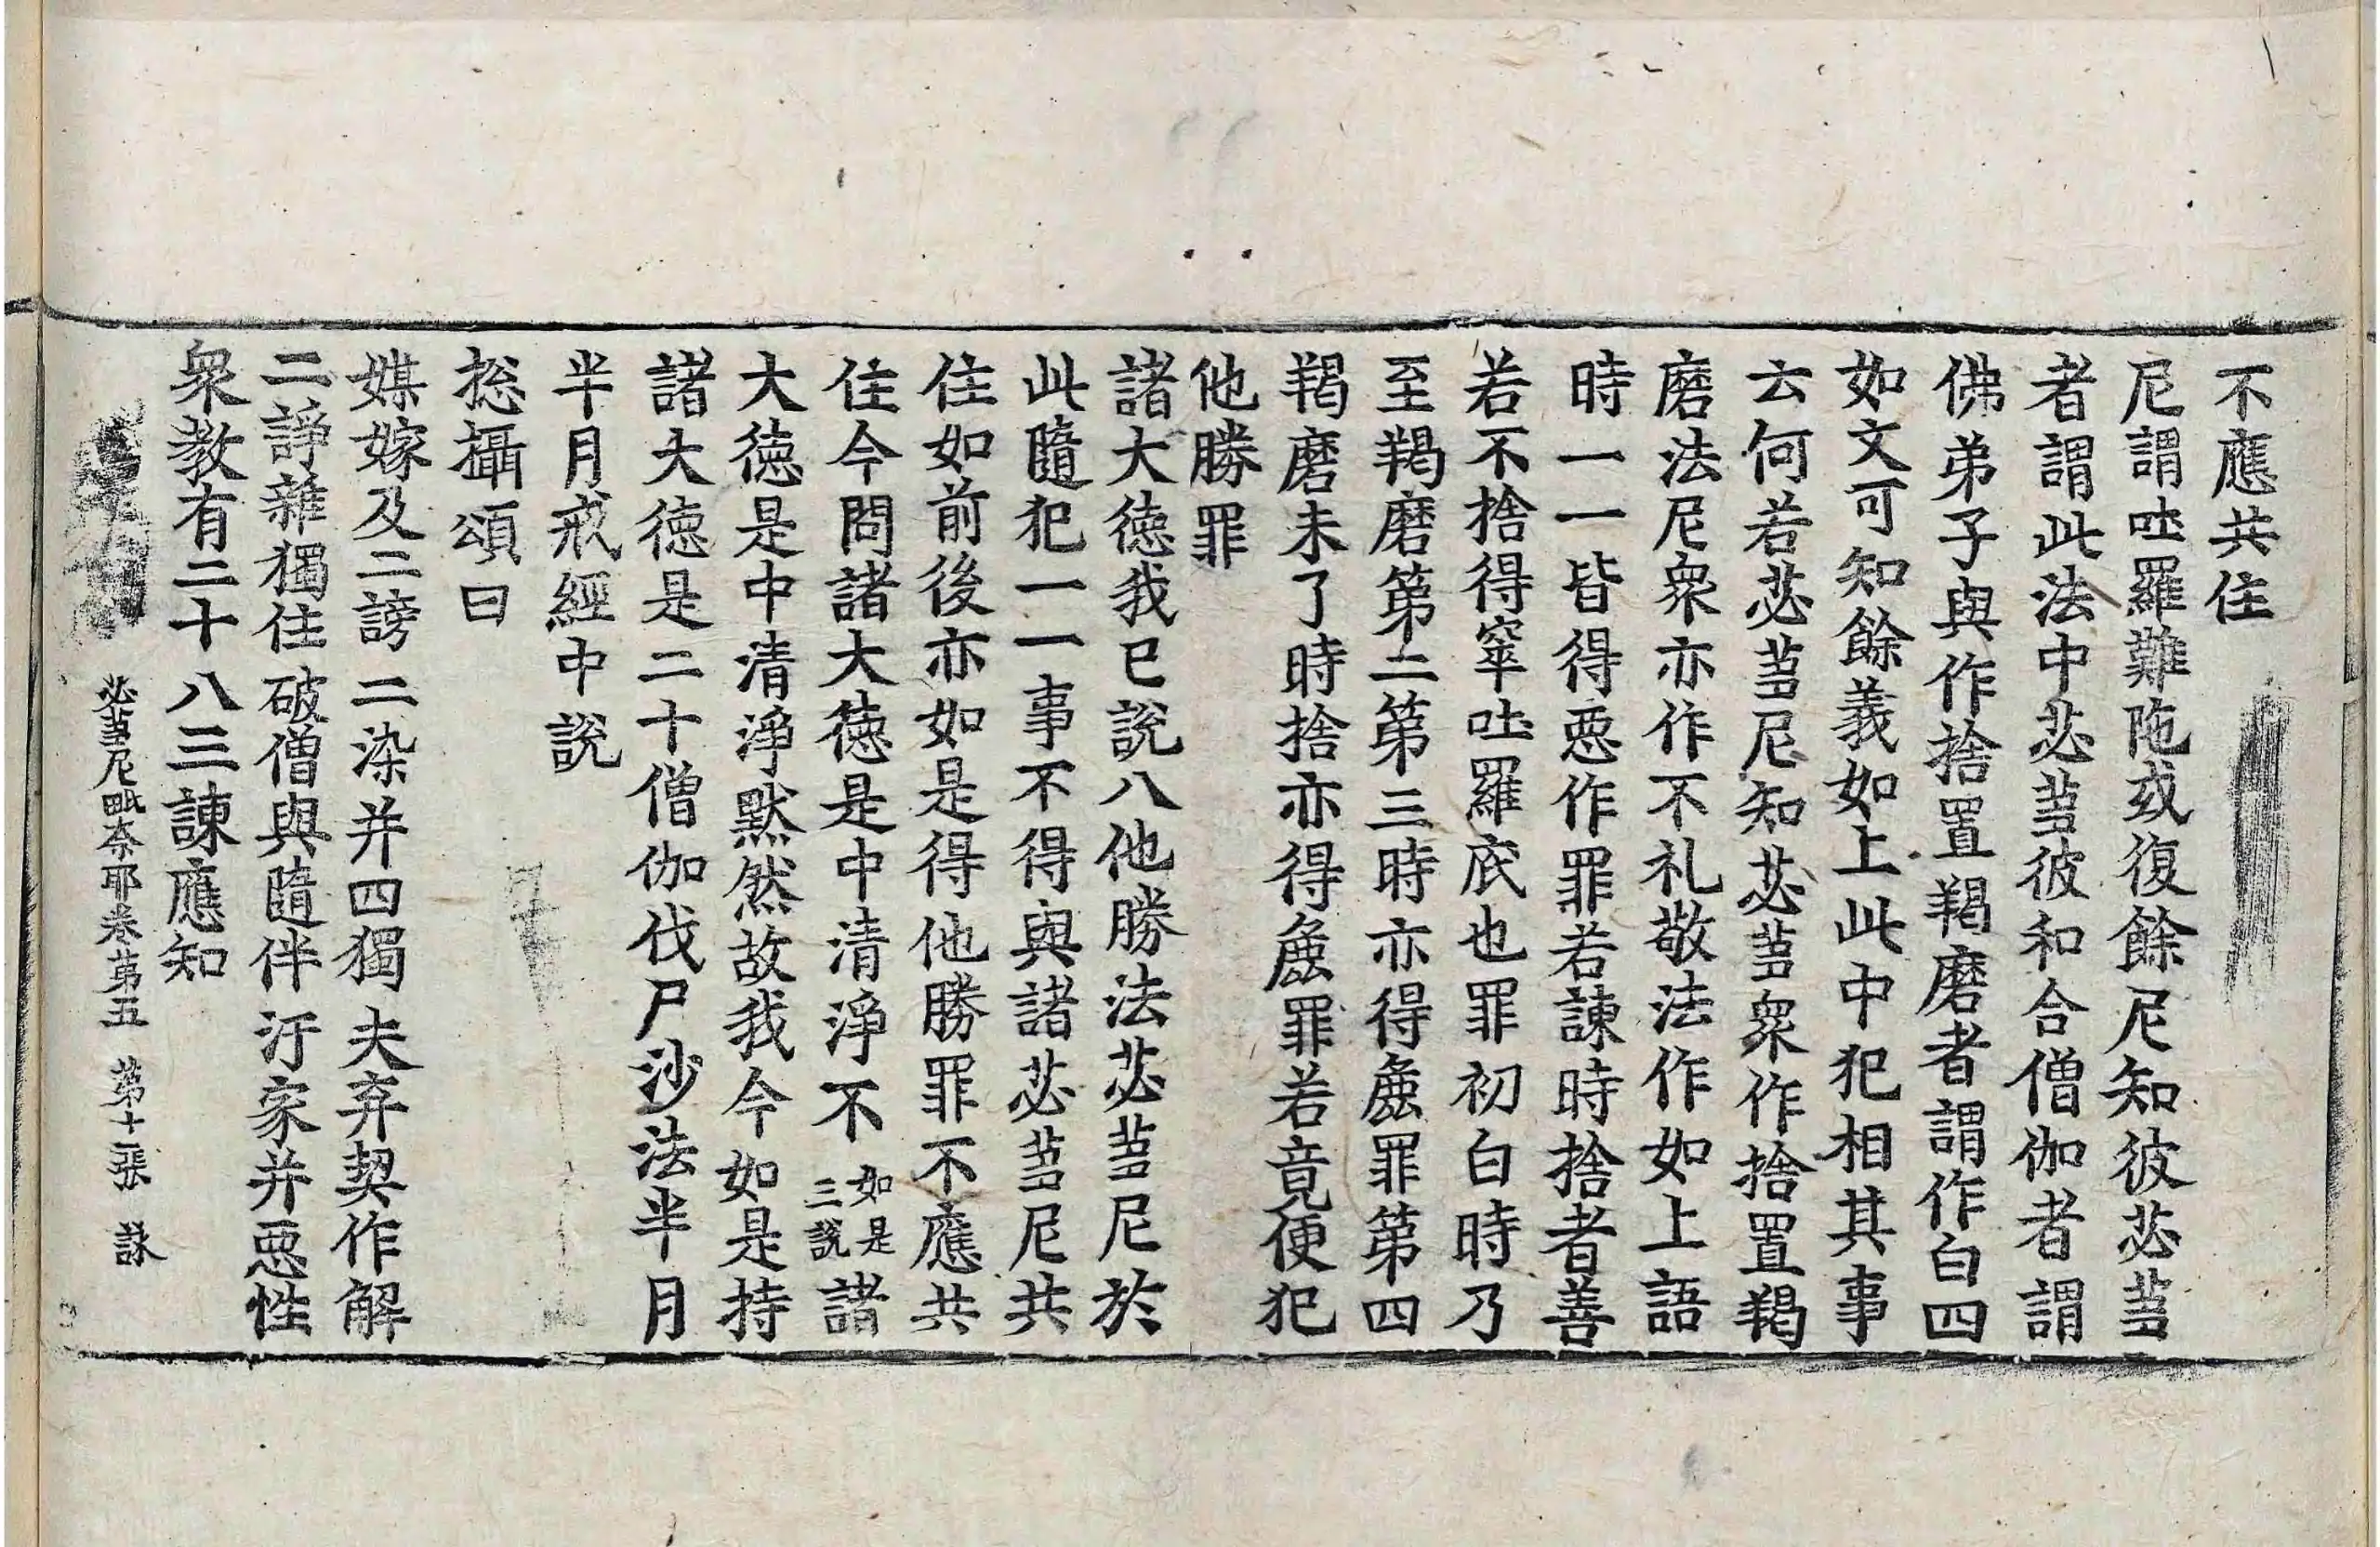 不應共住
尼謂吐羅難陁或復餘尼知彼苾蒭
者謂此法中苾蒭彼和合僧伽者謂
佛弟子與作捨置羯磨者謂作白四
如文可知餘義如上此中犯相其事
云何若苾蒭尼知苾蒭衆作捨置羯
磨法尼衆亦作不礼敬法作如上語
時一一皆得惡作罪若諫時捨者善
若不捨得窣吐羅底也罪初白時乃
至羯磨第二第三時亦得麁罪第四
羯磨未了時捨亦得麁罪若竟便犯
他勝罪
諸大德我已說八他勝法苾蒭尼於
此隨犯一一事不得與諸苾蒭尼共
住如前後亦如是得他勝罪不應共
住今問諸大德是中清淨不如是三說諸
大德是中清淨默然故我今如是持
諸大德是二十僧伽伐尸沙法半月
半月戒經中說
揔攝頌曰
媒嫁及二謗 二染并四獨 夫弃契作解
二諍雜獨住 破僧與隨伴 汙家并惡性
衆教有二十 八三諫應知
苾蒭尼毗奈耶卷第五 第十二張 詠